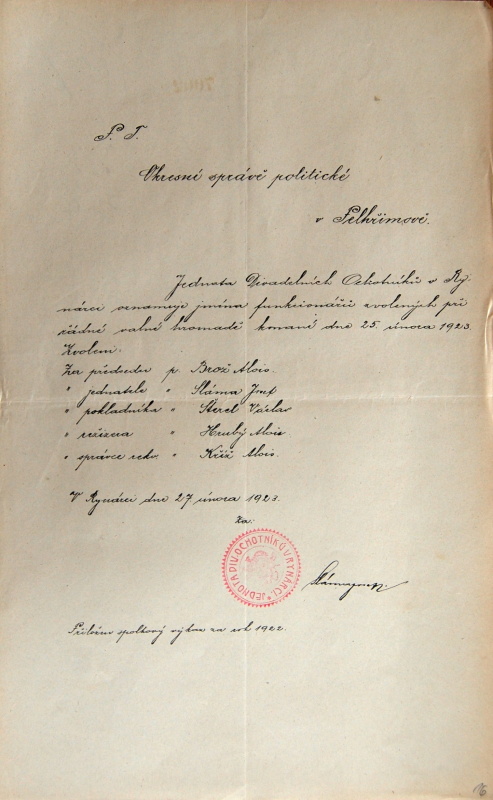 P. T.
Okresní správě politické
v Pelhřimově.
Jednota Divadelních Ochotníků v Ry-
nárci oznamuje jména funkcionářů zvolených při
řádné valné hromadě konané dne 25. února 1923.
Zvoleni.
Za předsedu p. Brož Alois.
" jednatele " Sláma Josef
" pokladníka " Štercl Václav
" režiséra " Hrubý Alois
" správce rekv. " Kříž Alois.
V Rynárci dne 27. února 1923.
Za:
JEDNOTA DIV. OCHOTNÍKŮ V RYNÁRCI.
Sláma
Přiložen spolkový výkaz za rok 1922.
16